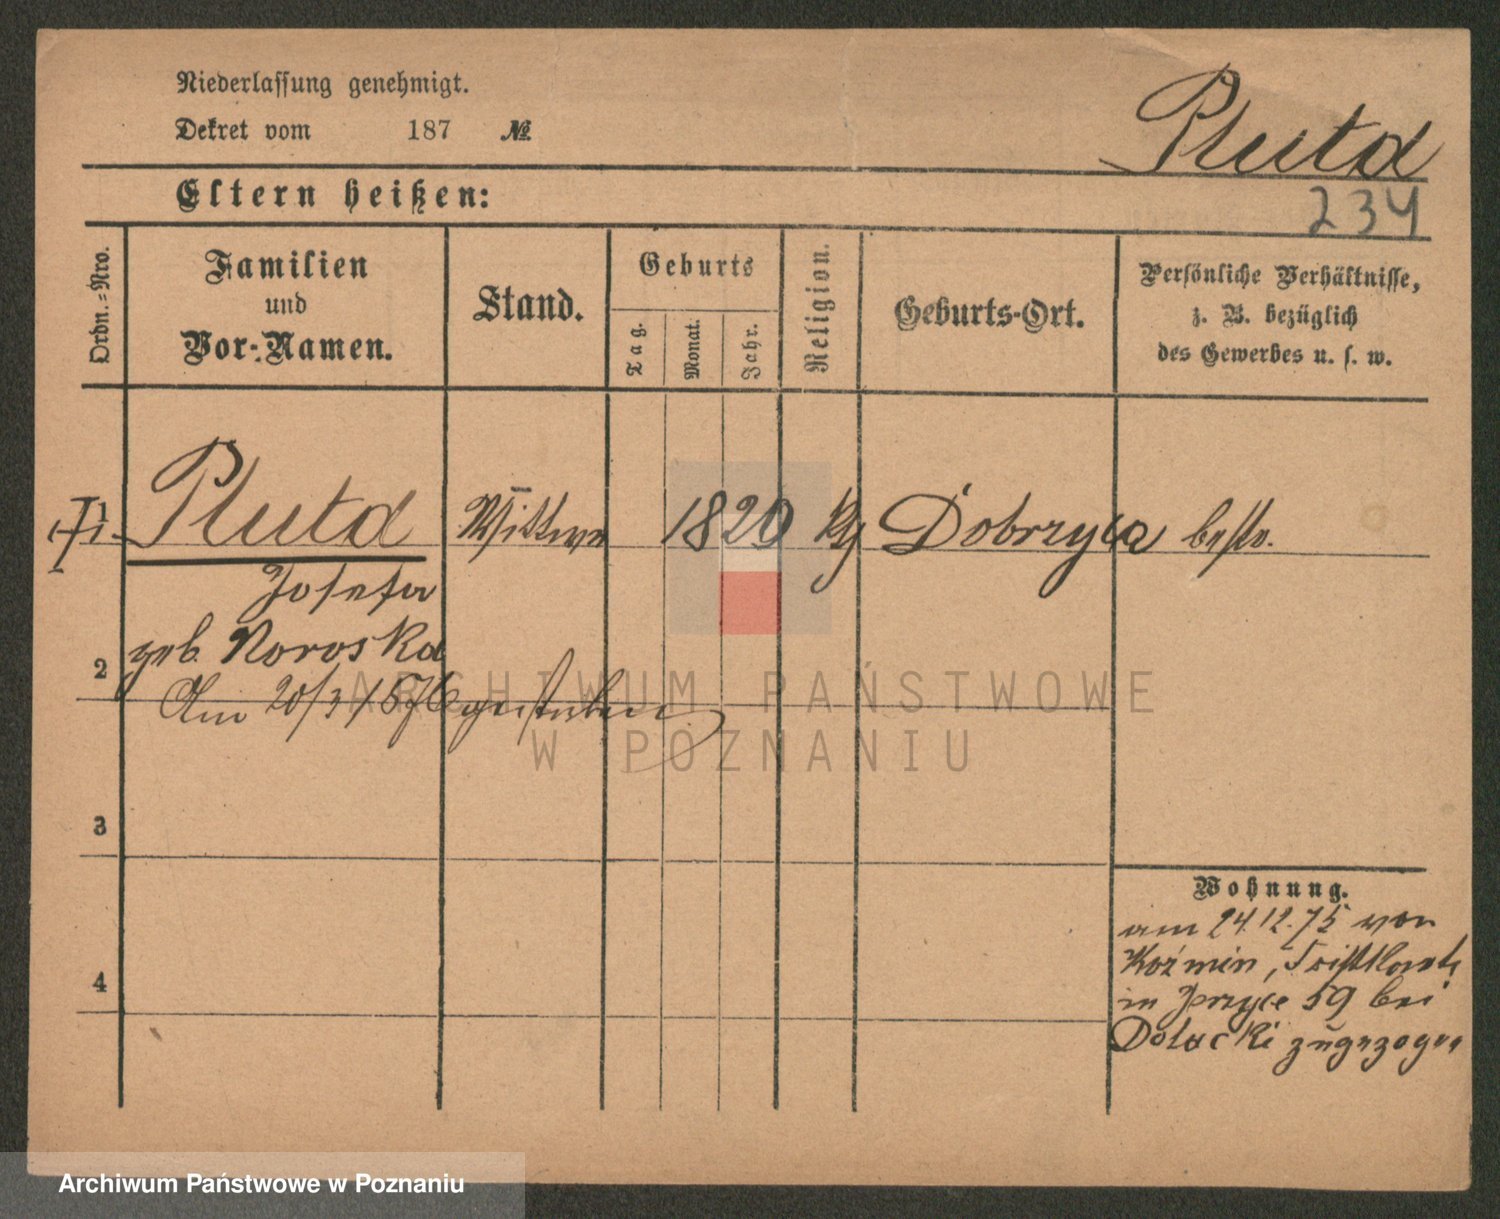 Niederlassung genehmigt.
Dekret vom 187 №
Pluta
Eltern heißen:
234
Ordn.=Nro.
Familien
und
Vor-Namen.
Stand.
Geburts
Tag.
Monat.
Jahr.
Religion.
Geburts-Ort.
Persönliche Verhältnisse,
z. B. bezüglich
des Gewerbes u. s. w.
1 Pluta Wittwe 1820 Dobrzyca
Josefa
geb. Noroska
2
Am 20/3 1876 gestorben
3
4
Wohnung.
am 24.12.75 von
Kozmin,
in 59 bei
Dolacki zugezogen
ARCHIWUM PAŃSTWOWE
W POZNANIU
Archiwum Państwowe w Poznaniu